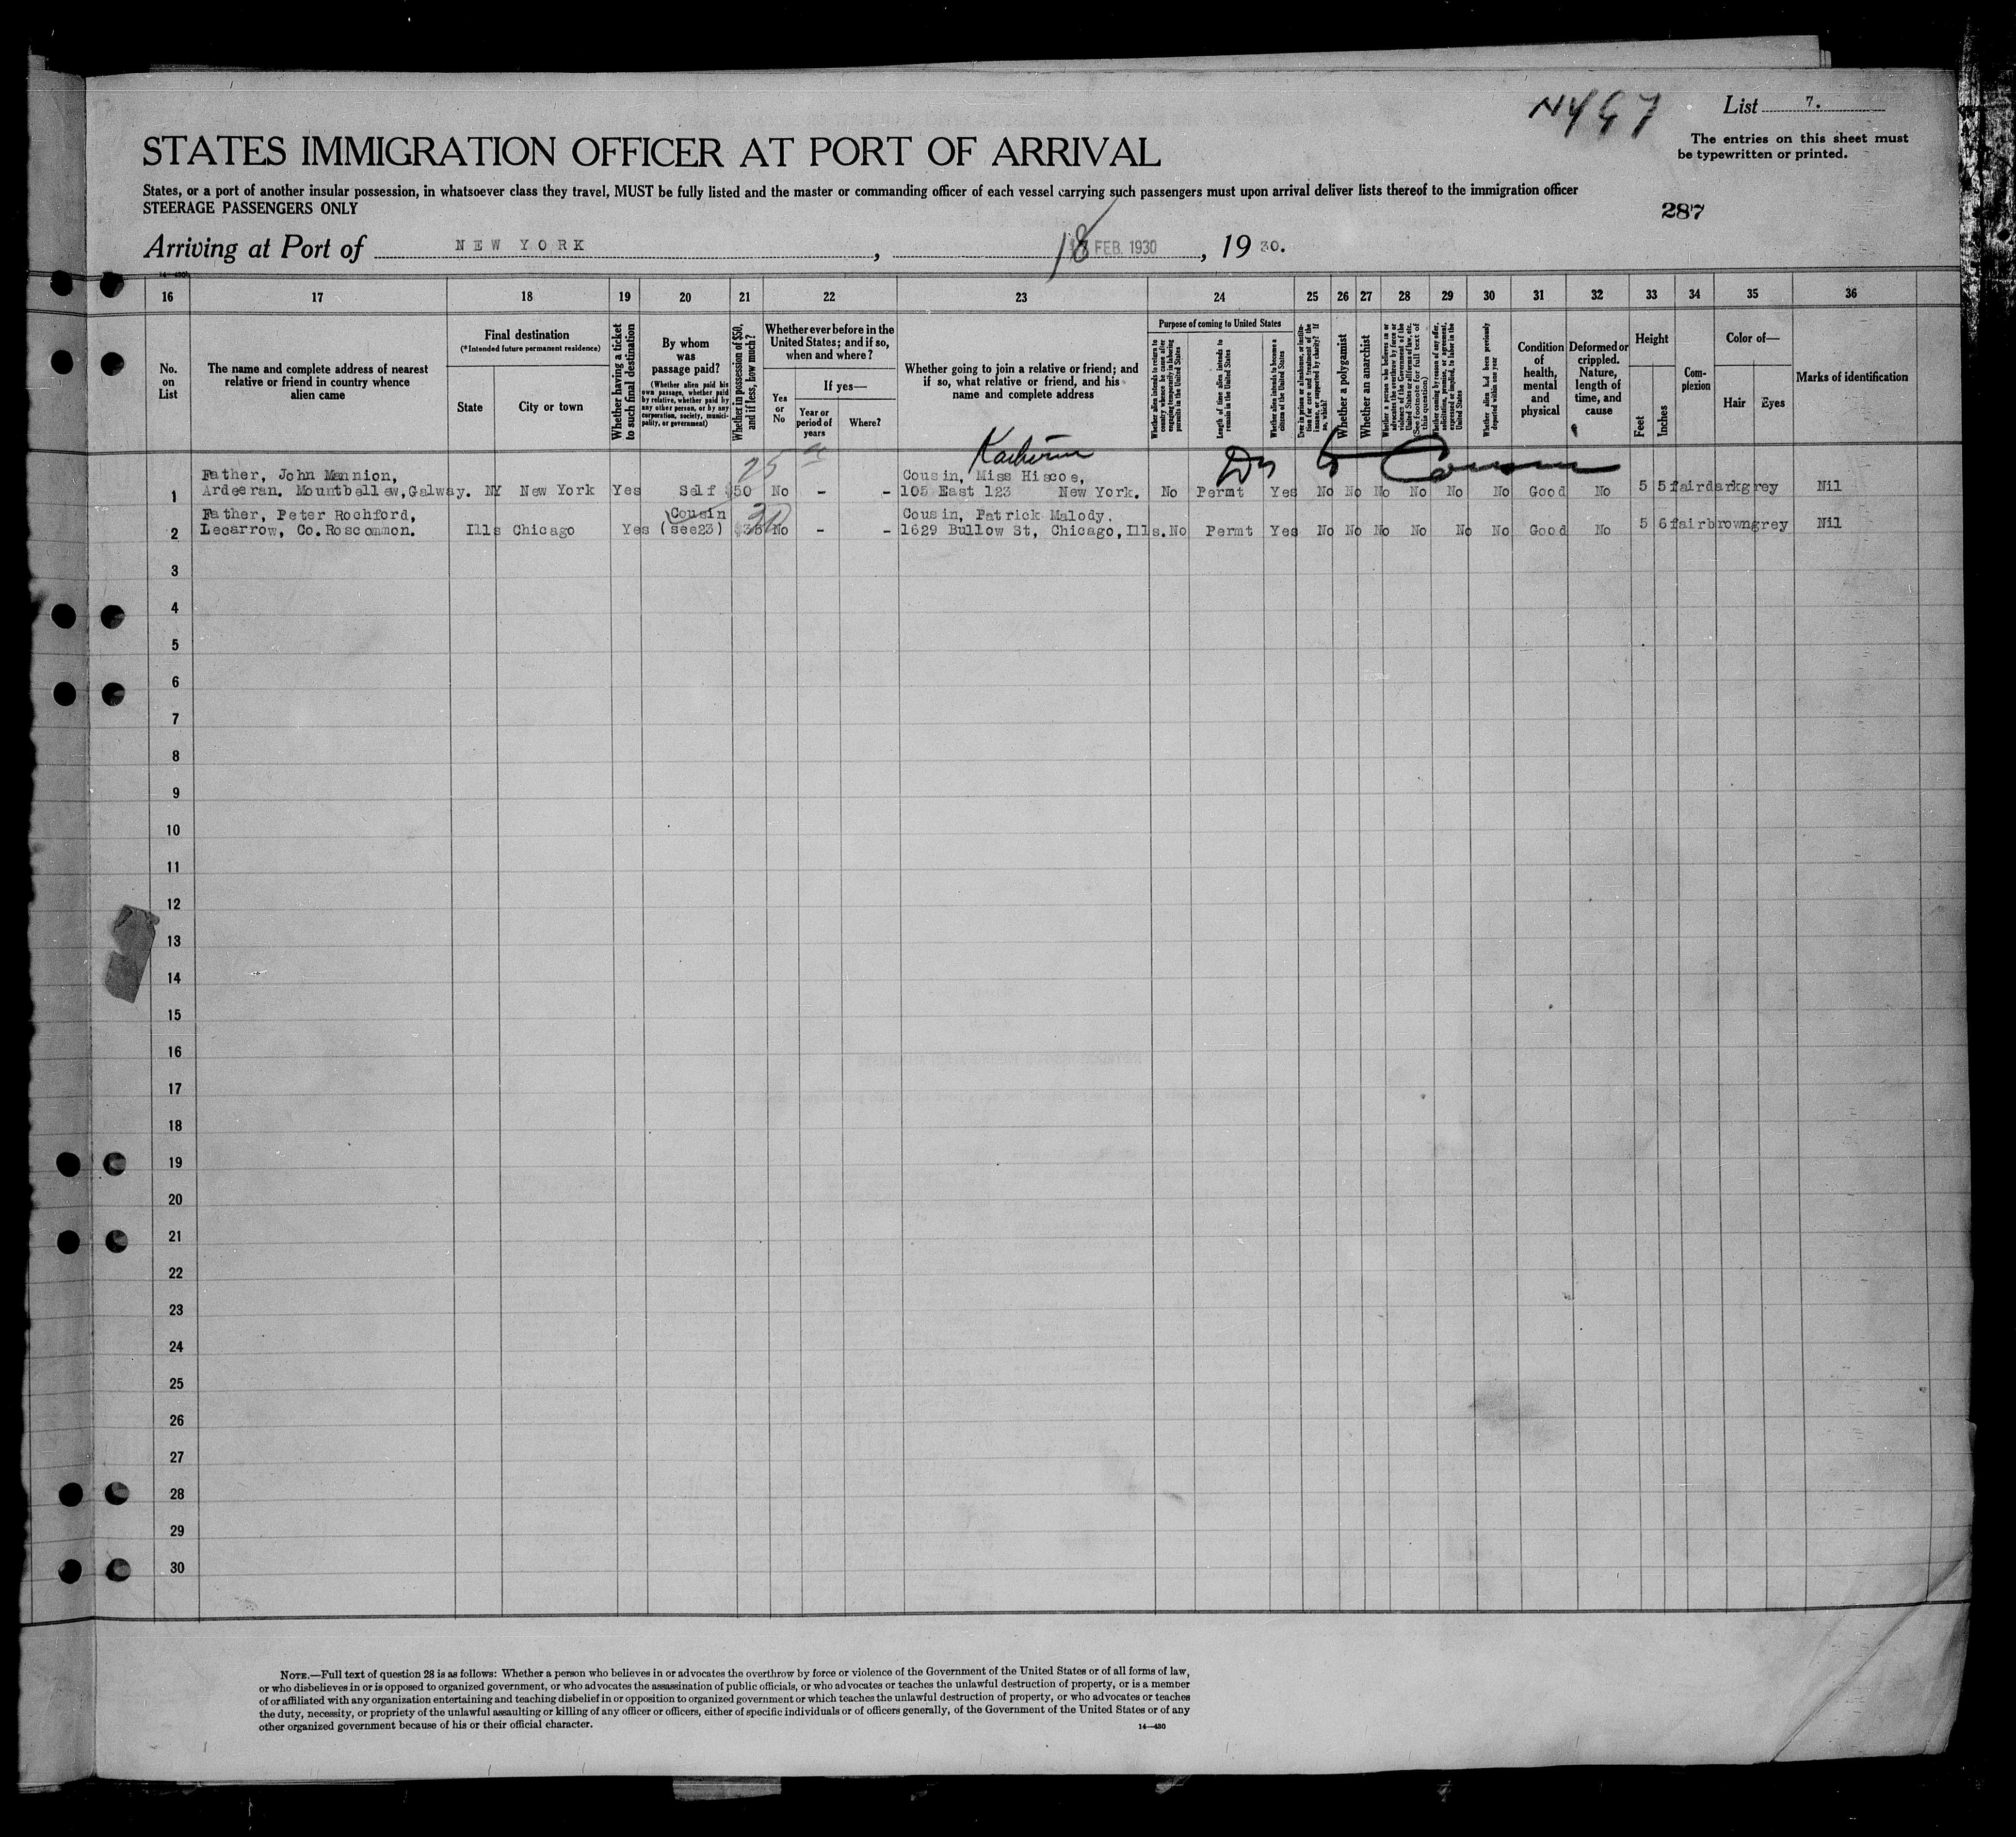 NYG7
List 7.
The entries on this sheet must
be typewritten or printed.
STATES IMMIGRATION OFFICER AT PORT OF ARRIVAL
States, or a port of another insular possession, in whatsoever class they travel, MUST be fully listed and the master or commanding officer of each vessel carrying such passengers must upon arrival deliver lists thereof to the immigration officer
STEERAGE PASSENGERS ONLY
287
Arriving at Port of NEW YORK, 18 FEB. 1930, 1930.
14—430
16 17 18 19 20 21 22 23 24 25 26 27 28 29 30 31 32 33 34 35 36
No.
on
List
The name and complete address of nearest
relative or friend in country whence
alien came
Final destination
(*Intended future permanent residence)
State
City or town
Whether having a ticket
to such final destination
By whom
was
passage paid?
(Whether alien paid his
own passage, whether paid
by relative, whether paid by
any other person, or by any
corporation, society, munici-
pality, or government)
Whether in possession of $50,
and if less, how much?
Whether ever before in the
United States; and if so,
when and where?
Yes
or
No
If yes—
Year or
period of
years
Where?
Whether going to join a relative or friend; and
if so, what relative or friend, and his
name and complete address
Purpose of coming to United States
Whether alien intends to return to
country whence he came after
engaging temporarily in laboring
pursuits in the United States
Length of time alien intends to
remain in the United States
Whether alien intends to become a
citizen of the United States
Ever in prison or almshouse, or institu-
tion for care and treatment of the
insane, or supported by charity? If
so, which?
Whether a polygamist
Whether an anarchist
Whether a person who believes in or
advocates the overthrow by force or
violence of the Government of the
United States or all forms of law, etc.
(See footnote for full text of
this question.)
Whether coming by reason of any offer,
solicitation, promise, or agreement,
expressed or implied, to labor in the
United States
Whether alien had been previously
deported within one year
Condition
of
health,
mental
and
physical
Deformed or
crippled.
Nature,
length of
time, and
cause
Height
Feet
Inches
Com-
plexion
Color of—
Hair
Eyes
Marks of identification
25
Katherine
Father, John Mannion, Cousin, Miss Hiscoe,
1 Ardeeran. Mountbellew, Galway. NY New York Yes Self $50 No - - 105 East 123 New York. No Permt Yes No No No No No No Good No 5 5 fair dark grey Nil
Father, Peter Rochford, Cousin Cousin, Patrick Malody.
2 Lecarrow, Co. Roscommon. Ills Chicago Yes (see23) $35 No - - 1629 Bullow St, Chicago, Ills. No Permt Yes No No No No No No Good No 5 6 fair brown grey Nil
3
4
5
6
7
8
9
10
11
12
13
14
15
16
17
18
19
20
21
22
23
24
25
26
27
28
29
30
NOTE.—Full text of question 28 is as follows: Whether a person who believes in or advocates the overthrow by force or violence of the Government of the United States or of all forms of law,
or who disbelieves in or is opposed to organized government, or who advocates the assassination of public officials, or who advocates or teaches the unlawful destruction of property, or is a member
of or affiliated with any organization entertaining and teaching disbelief in or opposition to organized government or which teaches the unlawful destruction of property, or who advocates or teaches
the duty, necessity, or propriety of the unlawful assaulting or killing of any officer or officers, either of specific individuals or of officers generally, of the Government of the United States or of any
other organized government because of his or their official character.
14—430